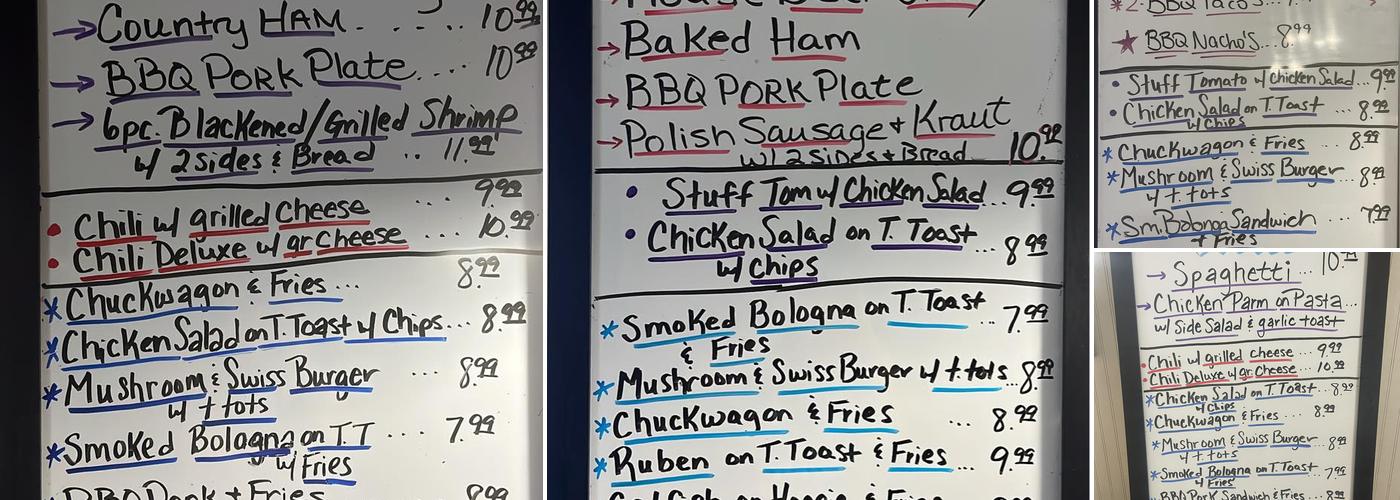 → Country HAM. . . . 10.99
→ BBQ PORK Plate.... 10.99
→ 6pc. Blackened/Grilled Shrimp
w/ 2 sides & Bread .. 11.99
• Chili w/ grilled cheese ... 9.99
• Chili Deluxe w/ gr cheese .... 10.99
* Chuckwagon & Fries ... 8.99
* Chicken Salad on T. Toast w/ Chips... 8.99
* Mushroom & Swiss Burger ... 8.99
w/ t tots
* Smoked Bologna on T.T .... 7.99
w/ Fries
BBQ Pork + Fries 8.99
→ Baked Ham
→ BBQ PORK Plate
→ Polish Sausage + Kraut
w/ 2 sides + Bread 10.99
• Stuff Tom w/ Chicken Salad 9.99
• Chicken Salad on T. Toast... 8.99
w/ Chips
* Smoked Bologna on T. Toast ... 7.99
& Fries
* Mushroom & Swiss Burger w/ t.tots... 8.99
* Chuckwagon & Fries ... 8.99
* Ruben on T. Toast & Fries ... 9.99
*2- BBQ Taco's
★ BBQ Nacho's... 8.99
• Stuff Tomato w/ Chicken Salad... 9.99
• Chicken Salad on T. Toast ... 8.99
w/ Chips
* Chuckwagon & Fries 8.99
* Mushroom & Swiss Burger ... 8.99
w/ t. tots
* Sm. Bolonga Sandwich 7.99
+ Fries
→ Spaghetti... 10.
→ Chicken Parm on Pasta...
w/ Side Salad & garlic toast
• Chili w/ grilled cheese ... 9.99
• Chili Deluxe w/ gr. Cheese .... 10.99
* Chicken Salad on T. Toast... 8.99
w/ Chips
* Chuckwagon & Fries .... 8.99
* Mushroom & Swiss Burger ... 8.99
w/ t tots
* Smoked Bologna on T. Toast ... 7.99
w/ Fries
BBQ Pork Sandwich & Fries ... 8.99